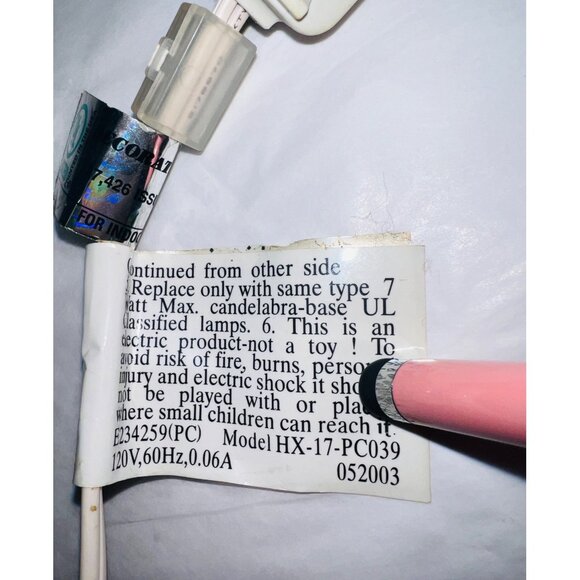 CORAT
7,426 SS
FOR INDO
ontinued from other side
Replace only with same type 7
Watt Max. candelabra-base UL
Classified lamps. 6. This is an
electric product-not a toy ! To
avoid risk of fire, burns, person
injury and electric shock it sho
not be played with or plac
where small children can reach it.
E234259(PC) Model HX-17-PC039
120V,60Hz,0.06A
052003